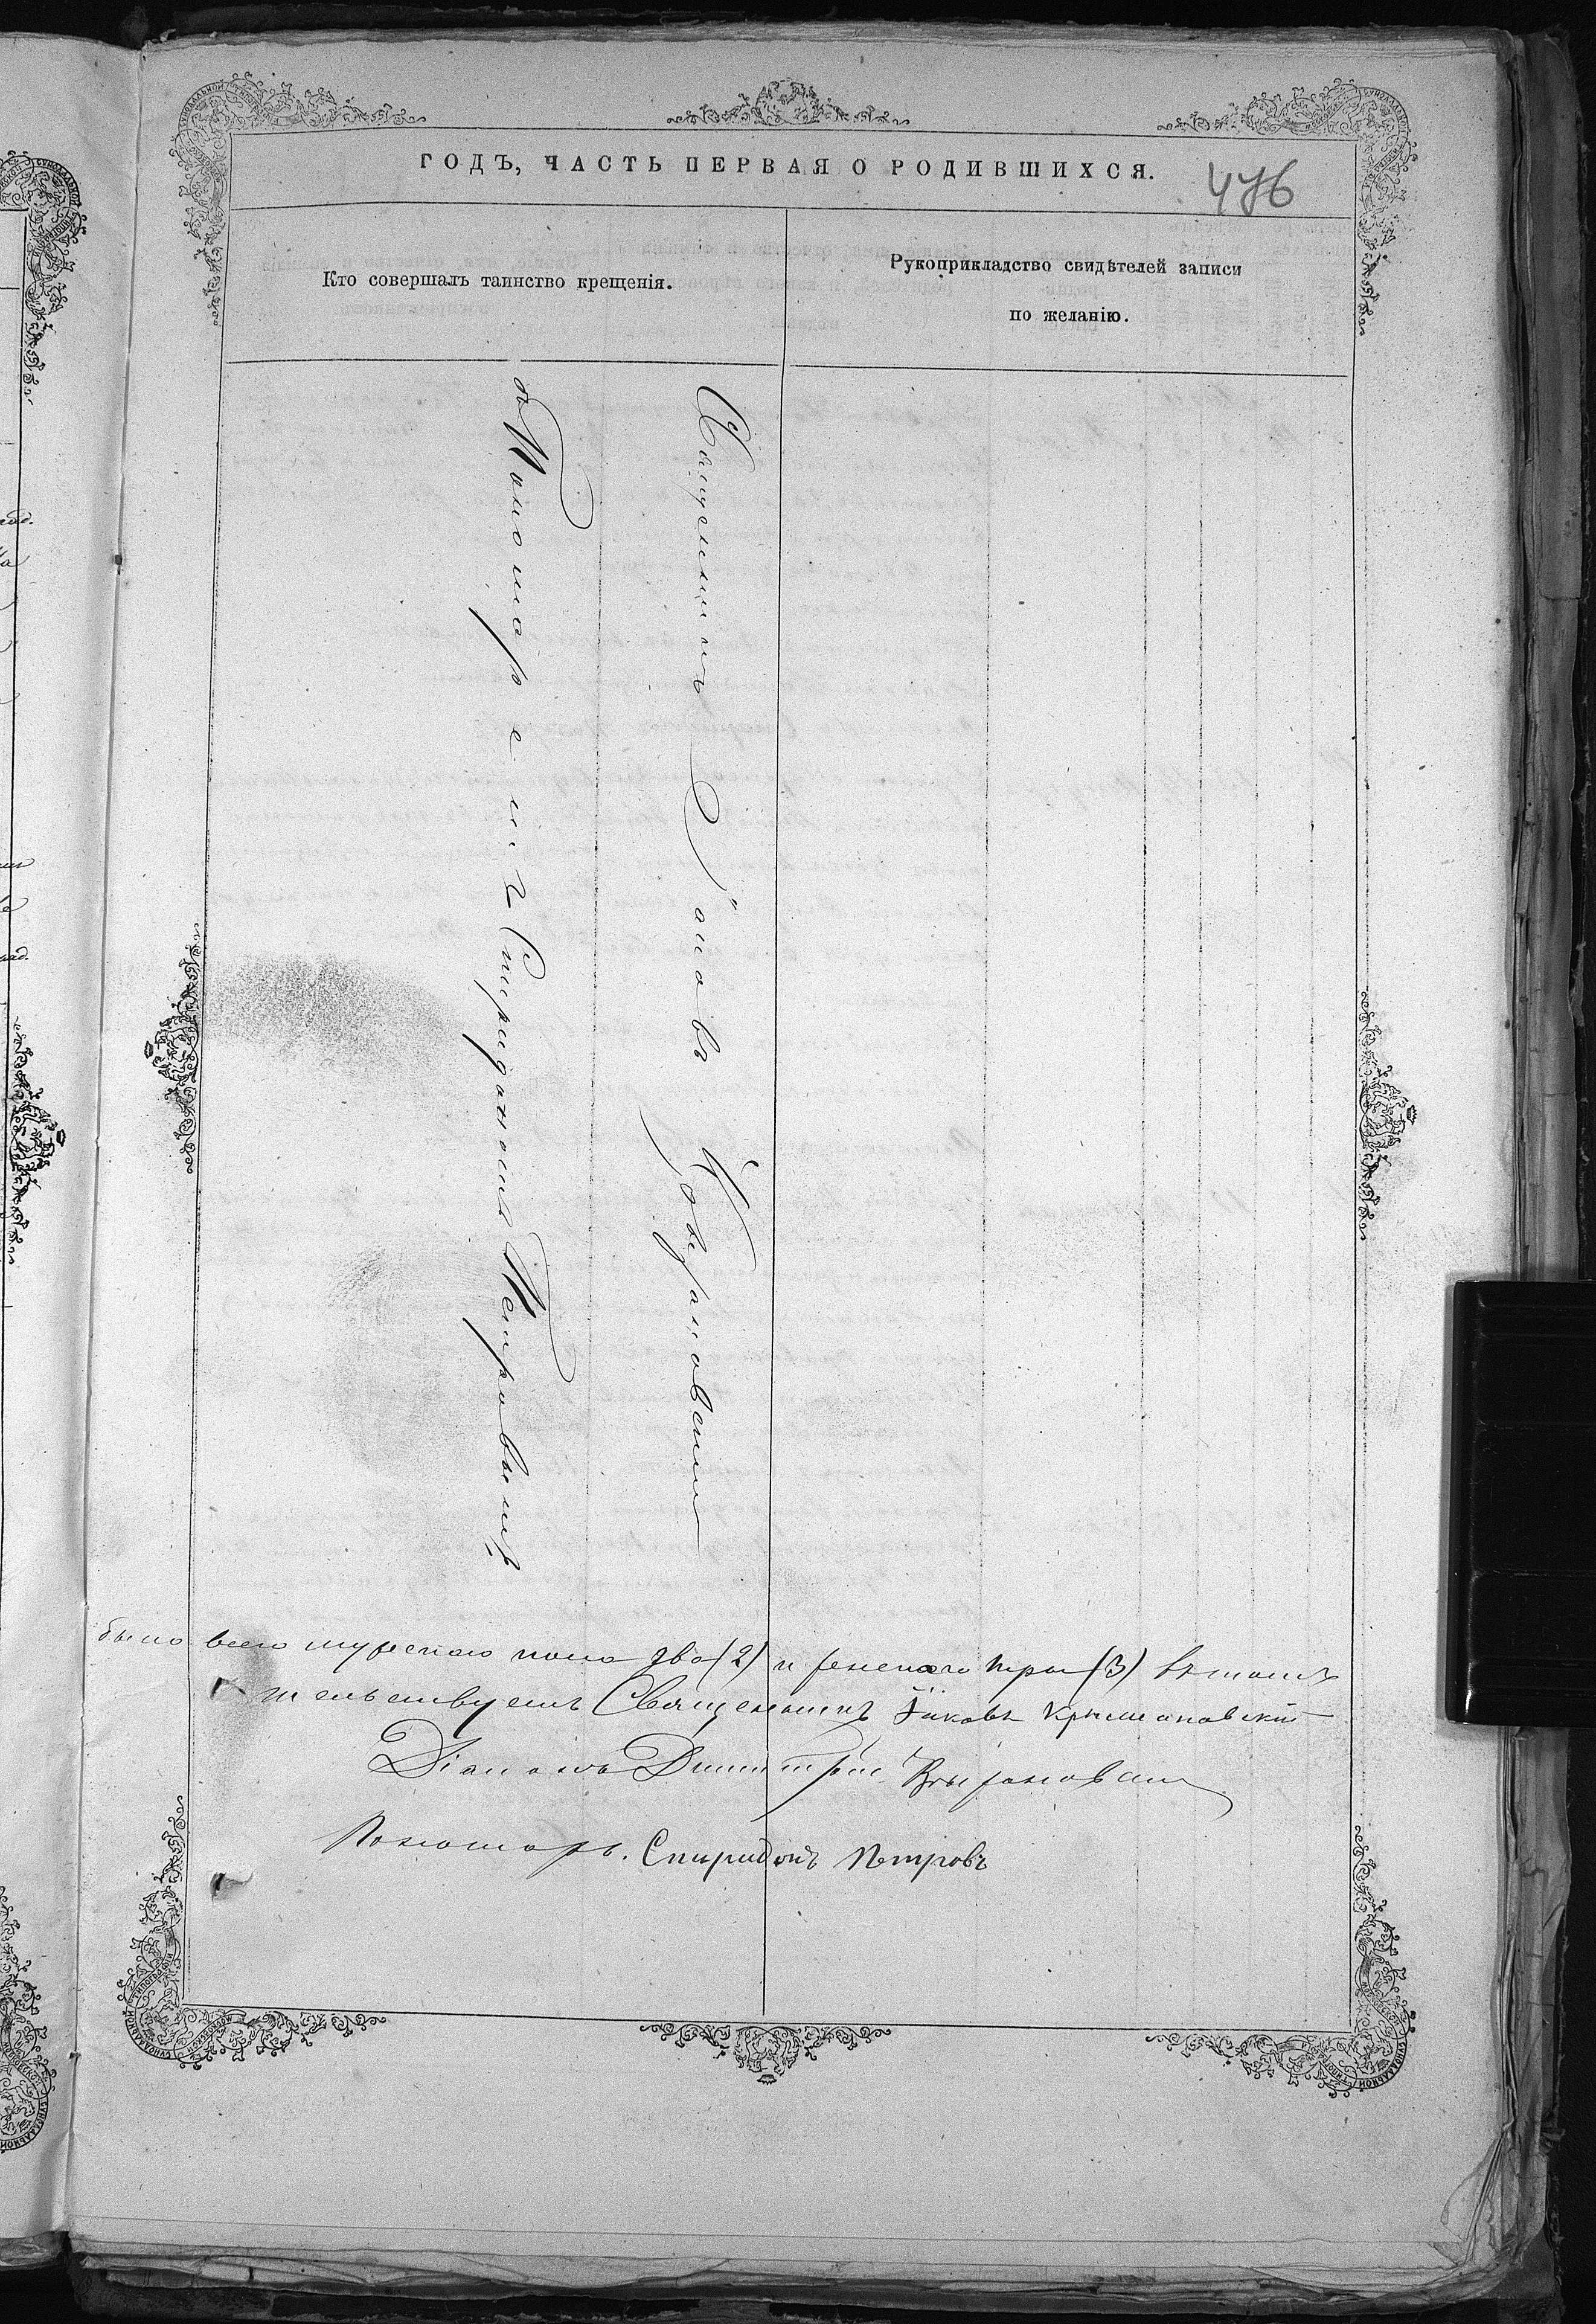 ГОДЪ, ЧАСТЬ ПЕРВАЯ О РОДИВШИХСЯ.
476
Кто совершалъ таинство крещенія.
Рукоприкладство свидѣтелей записи
по желанію.
Священникъ Іаковъ
съ Пономаремъ Спиридономъ Петровымъ
было всего мужескаго пола два (2) и женскаго три (3) в томъ
Священникъ Іаковъ
Діаконъ Димитрій
Пономарь. Спиридонъ Петровъ